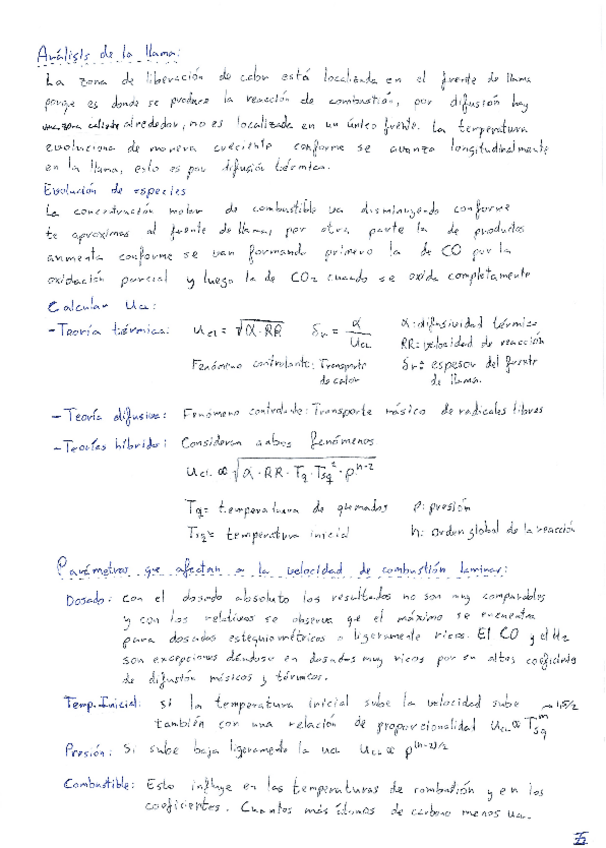 Análisis de la llama:
La zona de liberación de calor está localizada en el frente de llama
porque es donde se produce la reacción de combustión, por difusión hay
una zona caliente alrededor, no es localizada en un único frente. La temperatura
evoluciona de manera creciente conforme se avanza longitudinalmente
en la llama, esto es por difusión térmica.
Evolución de especies
La concentración molar de combustible va disminuyendo conforme
te aproximas al frente de llama, por otra parte la de productos
aumenta conforme se van formando primero la de CO por la
oxidación parcial y luego la de CO₂ cuando se oxida completamente
Calcular Ucl:
- Teoría térmica: Ucl = √(α·RR) δu = α/Ucl α: difusividad térmica
RR: velocidad de reacción
Fenómeno controlante: Transporte de calor
δu: espesor del frente de llama.
- Teoría difusiva: Fenómeno controlante: Transporte másico de radicales libres
- Teorías híbrido: Consideran ambos fenómenos.
Ucl ∝ √(α·RR·Tq·Tsq²·p^(n-2))
Tq = temperatura de quemados p: presión
Tsq = temperatura inicial n: orden global de la reacción
Parámetros que afectan a la velocidad de combustión laminar:
Dosado: Con el dosado absoluto los resultados no son muy comparables
y con los relativos se observa que el máximo se encuentra
para dosados estequiométricos o ligeramente ricos. El CO y el H₂
son excepciones dándose en dosados muy ricos por su altos coeficiente
de difusión másicos y térmicos.
Temp. Inicial: Si la temperatura inicial sube la velocidad sube
también con una relación de proporcionalidad Ucl ∝ Tsq^m → 1,5/2
Presión: Si sube baja ligeramente la ucl Ucl ∝ p^((n-2)/2)
Combustible: Esto influye en las temperaturas de combustión y en los
coeficientes. Cuantos más átomos de carbono menos ucl.